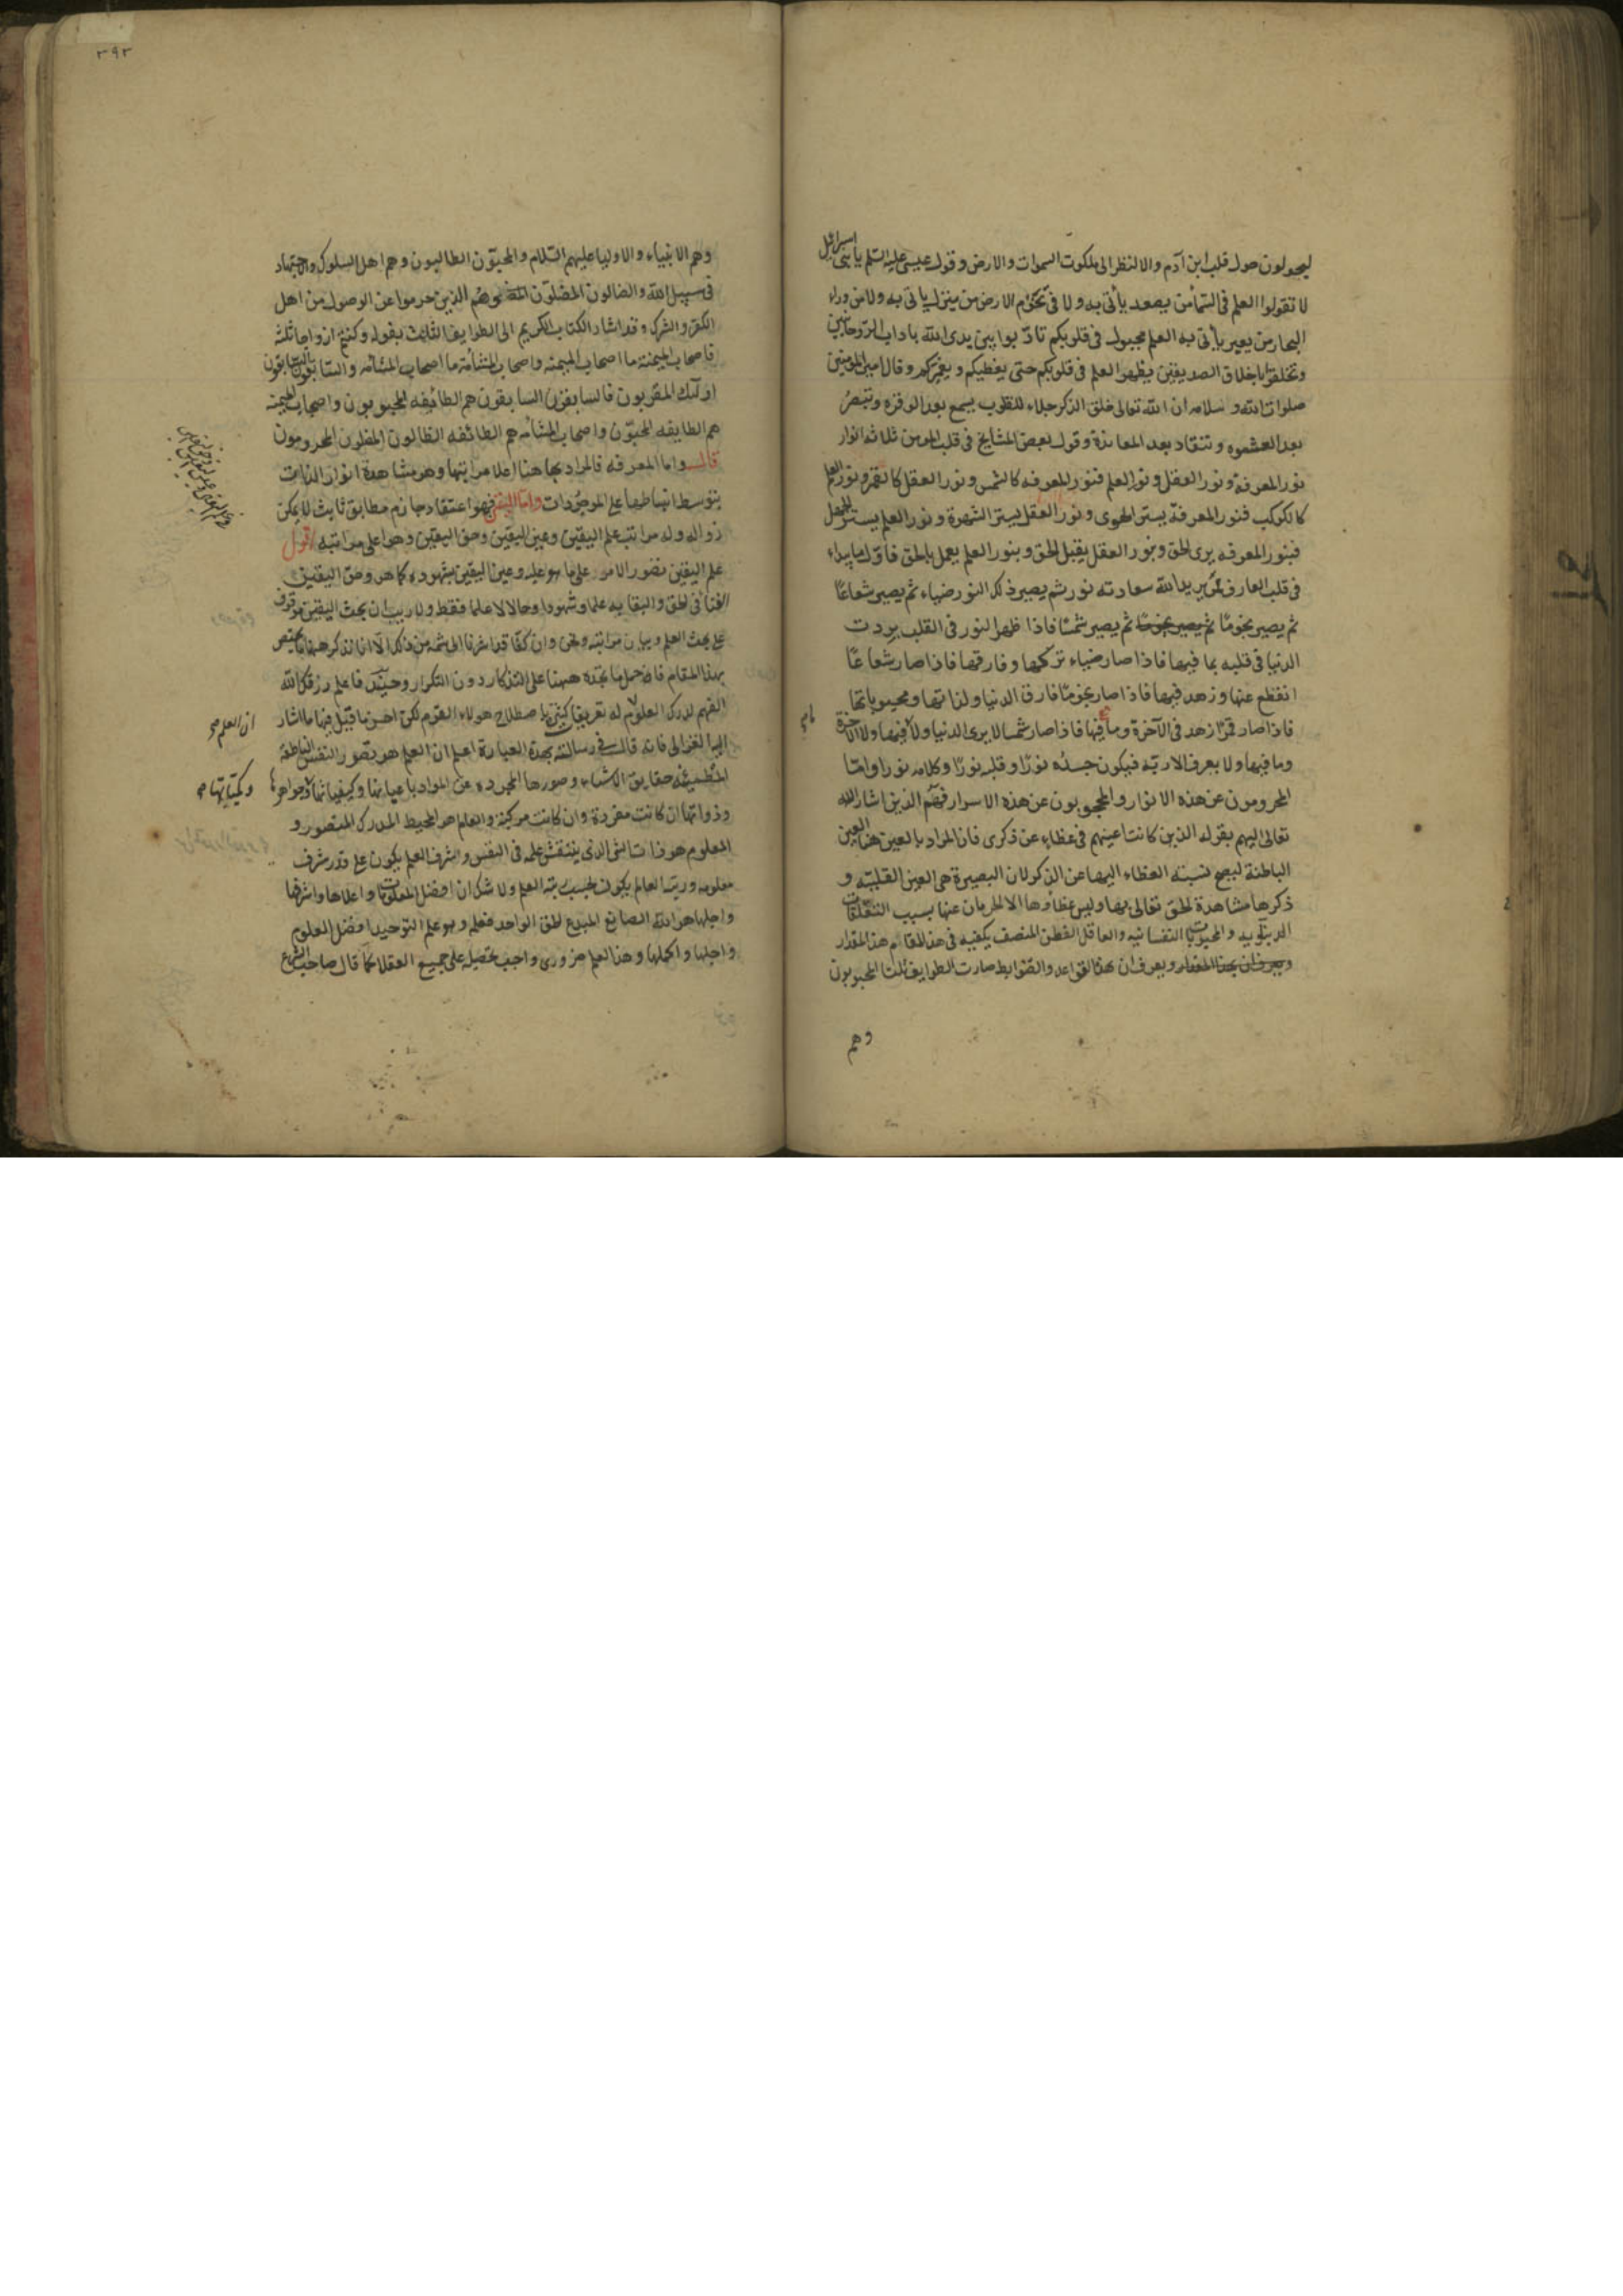 يجولون حول قلب ابن آدم والا لنظر الى ملكوت السموات والارض وقول عيسى عليه السلم يا بنى اسرائيل
لا تقولوا العلم فى السماء من يصعد يأتى به ولا فى تخوم الارض من ينزل يأتى به ولا من وراء
البحار من يعبر يأتى به العلم مجبول فى قلوبكم تأدبوا بين يدى الله بآداب الروحانيين
وتخلقوا باخلاق الصديقين يظهر العلم فى قلوبكم حتى يغطيكم و يغمركم وقال امير المومنين
صلوات الله و سلامه ان الله تعالى خلق الذكر جلاء للقلوب يسمع بعد الوقرة وتبصر
بعد العشوه و تنقاد بعد المعاندة وقول بعض المشايخ فى قلب المومن ثلاثه انوار
نور المعرفة و نور العقل و نور العلم فنور المعرفه كالشمس و نور العقل كالقمر ونور العلم
كالكوكب فنور المعرفة يستر الهوى و نور العقل يستر الشهوة و نور العلم يستر الجهل
فبنور المعرفه يرى الحق و بنور العقل يقبل الحق و بنور العلم يعمل بالحق فاول ما يبداء
فى قلب العارف ممن يريد الله سعادته نور ثم يصير ذلك النور ضياء ثم يصير شعاعًا
ثم يصير نجومًا ثم يصير نجومًا ثم يصير شمسًا فاذا ظهر النور فى القلب بردت
الدنيا فى قلبه بما فيها فاذا صار ضياء تركها وفارقها فاذا صار شعاعًا
انقطع عنها وزهد فيها فاذا صار نجومًا فارق الدنيا ولذاتها و محبوباتها
فاذا صار قمرًا زهد فى الآخرة وما فيها فاذا صار شمسا لا يرى الدنيا ولا فيها ولا الاخرة
وما فيها ولا يعرف الا ربه فيكون جسده نورًا و قلبه نورًا وكلامه نورا واما
المحرومون عن هذه الانوار والمحجوبون عن هذه الاسرار فهم الذين اشار الله
تعالى اليهم بقوله الذين كانت اعينهم فى غطاء عن ذكرى فان المراد بالعين هنا العين
الباطنة ليصح نسبة الغطاء اليها عن الذكر لان البصيرة هى العين القلبيه و
ذكرها مشاهدة الحق تعالى بها وليس غطاؤها الا الحرمان عنها بسبب التعلقات
الدنيويه و المحبوبات النفسانيه والعاقل الفطن المنصف يكفيه فى هذا المقام هذا المقدار
ويعرف ان بهذا المقدار و يعرف ان بهذا القواعد والضوابط صارت الطوايف ثلثا المحبوبون
وهم
٣٩٢
وهم الانبياء والاوليا عليهم السلام والمحبون الطالبون وهم اهل السلوك والاجتهاد
فى سبيل الله والضالون المضلون وهم الذين حرموا عن الوصول من اهل
الكفر والشرك وقد اشار الكتاب الكريم الى الطوايف الثلث بقوله وكنتم ازواجا ثلثه
فاصحاب الميمنة ما اصحاب الميمنه واصحاب المشأمة ما اصحاب المشأمه والسابقون السابقون
اولئك المقربون فالسابقون السابقون هم الطائفه المحبوبون واصحاب الميمنه
هم الطايفه المحبون واصحاب المشأمه هم الطائفه الظالون المظلون المحرومون
قال واما المعرفه فالمراد بها هنا اعلا مراتبها وهو مشاهدة انوار الذات
بتوسط انبساطها على الموجودات واما اليقين فهو اعتقاد جازم مطابق ثابت لا يمكن
زواله وله مراتب علم اليقين وعين اليقين وحق اليقين وهو اعلى مراتبه اقول
علم اليقين تصور الامر على ما هو عليه وعين اليقين بشهوده كما هو وحق اليقين
الفنا فى الحق والبقا به علما وشهودا وحالا لا علما فقط ولا ريب ان بحث اليقين موقوف
على بحث العلم وبيان مراتبه ونحن وان كنا قد اشرنا الى شمة من ذلك الا انا نذكر ههنا ما يختص
بهذا المقام فاحمل ما تجده ههنا على التذكار دون التكرار وحينئذ فاعلم رزقك الله
الفهم لدرك العلوم ان العلم له تعريفات كثيرة باصطلاح هولاء القوم لكن احسن ما قيل فيها ما اشار
اليه الغزالى فانه قال فى رسالته بهذه العبارة اعلم ان العلم هو تصور النفس الناطقة
المطمئنه حقايق الاشياء وصورها المجرده عن المواد باعيانها وكيفياتها وكمياتها وجواهرها
وذواتها ان كانت مفردة وان كانت مركبة والعالم هو المحيط المدرك المتصور و
المعلوم هو ذات الشى الذى ينتقش علمه فى النفس وشرف العلم يكون على قدر شرف
معلومه ورتبة العالم يكون بحسب رتبة العلم ولا شك ان افضل المعلومات واعلاها واشرفها
واجلها هو الله الصانع المبدع الحق الواحد فعلمه وهو علم التوحيد افضل العلوم
واجلها واكملها وهذا العلم ضرورى واجب تحصيله على جميع العقلا كما قال صاحب الشرع